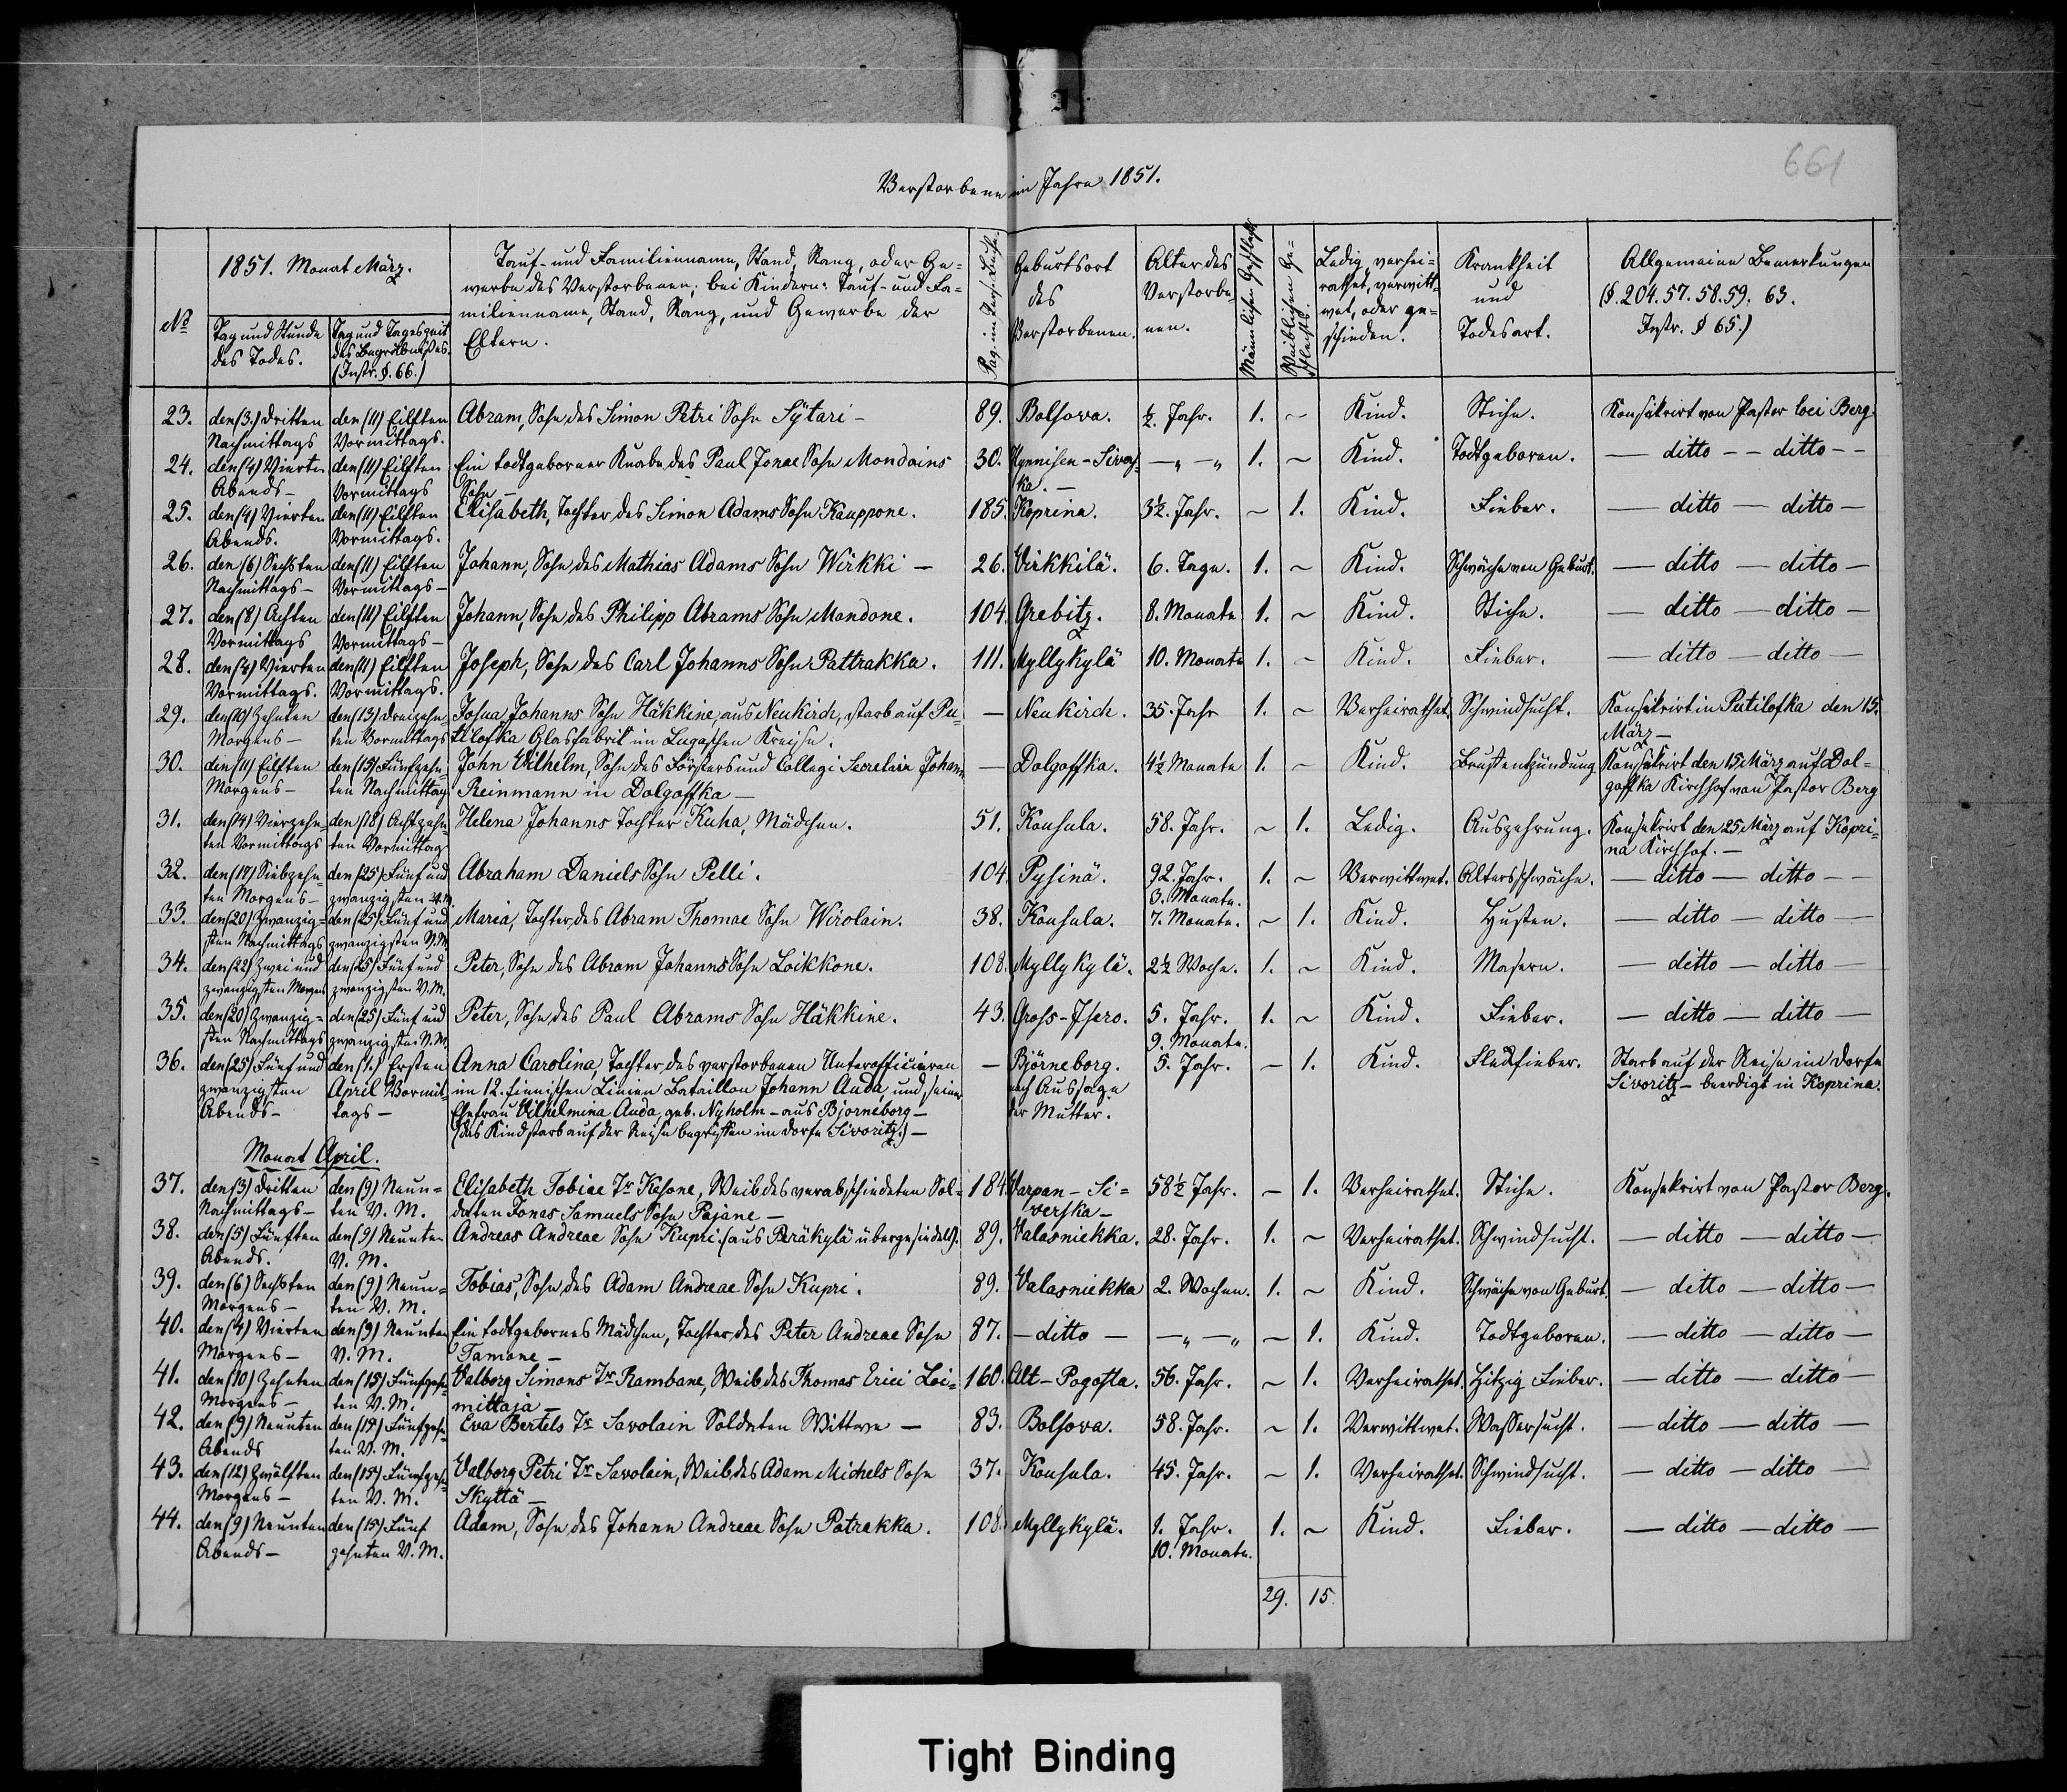 661
Verstorbene im Jahre 1851.
1851. Monat März.
No
Tag und Stunde des Todes.
Tag und Tageszeit des Begräbnißes. (Instr. §. 66.)
Tauf- und Familienname, Stand, Rang, oder Ge=
werbe des Verstorbenen; bei Kindern: Tauf- und Fa=
milienname, Stand, Rang, und Gewerbe der
Eltern.
Geburtsort des Verstorbenen.
Alter des Verstorbe nen.
Männlichen Geschlechts
Weiblichen Ge= schlechts.
Ledig, verhei= rathet, verwitt= wet, oder ge= schieden.
Krankheit und Todesart.
Allgemeine Bemerkungen
(§. 204. 57. 58. 59. 63.
Instr. § 65.)
23. den (3.) Dritten den (11) Eilften Abram, Sohn des Simon Petri Sohn Sÿtari - 89. Bolsova. ½. Jahr. 1. ~ Kind. Stiche. Konsekrirt von Pastor loci Berg
Nachmittags Vormittags.
24. den (4) Vierten den (11) Eilften Ein todtgeborner Knabe des Paul Jonae Sohn Mondoins 30. Hynnisen-Sivos= — „ — „ 1. ~ Kind. Todtgeboren. — ditto — — ditto — —
Abends - Vormittags Sohn - ka. —
25. den (4) Vierten den (11) Eilften Elisabeth, Tochter des Simon Adams Sohn Kauppone. 185. Koprina. 3½. Jahr. ~ 1. Kind. Fieber. — ditto — ditto —
Abends. Vormittags.
26. den (6) Sechsten den (11) Eilften Johann, Sohn des Mathias Adams Sohn Wirkki — 26. Virkkilä. 6. Tage. 1. ~ Kind. Schwäche von Geburt. — ditto — ditto —
Nachmittags - Vormittags -
27. den (8) Achten den (11) Eilften Johann, Sohn des Philipp Abrams Sohn Mondone. 104. Grebitz. 8. Monate 1. ~ Kind. Stiche. — ditto — ditto —
Vormittags Vormittags -
28. den (4) Vierten den (11) Eilften Joseph, Sohn des Carl Johanns Sohn Pattrakka. 111. Myllykylä 10. Monate 1. ~ Kind. Fieber. — ditto — ditto —
Vormittags. Vormittags.
29. den (10) Zehnten den (13) Dreizehn= Josua Johanns Sohn Häkkine, aus Neukirch, starb auf Pu= — Neukirch. 35. Jahr 1. ~ Verheirathet. Schwindsucht. Konsekrirt in Putilofka den 15.
Morgens - ten Vormittags tilofka Glasfabrik im Lugaschen Kreise. März —
30. den (11) Eilften den (15) Fünfzehn= John Vilhelm, Sohn des Försters und Collegi Secretair Johann — Dolgoffka. 4½ Monate 1. ~ Kind. Brustentzündung. Konsekrirt den 15 März auf Dol=
Morgens - ten Nachmittag Reinmann in Dolgoffka — goffka Kirchhof von Pastor Berg
31. den (14) Vierzehn= den (18) Achtzehn= Helena Johanns Tochter Kuha, Mädchen. 51. Konsula. 58. Jahr. ~ 1. Ledig. Auszehrung. Konsekrirt den 25 März auf Kopri=
ten Vormittags ten Vormittag na Kirchhof. —
32. den (17) Siebzehn= den (25) Fünf und Abraham Daniels Sohn Pelli. 104. Pysinä. 92. Jahr. 1. ~ Verwittwet. Altersschwäche. — ditto — ditto —
ten Morgens - zwanzigsten V.M. 3. Monate.
33. den (20) Zwanzig= den (25) Fünf und Maria, Tochter des Abram Thomae Sohn Wirolain. 38. Konsula. 7. Monate. ~ 1. Kind. Husten. — ditto — ditto —
sten Nachmittags zwanzigsten V.M.
34. den (22) Zwei und den (25) Fünf und Peter, Sohn des Abram Johanns Sohn Loikkone. 108. Myllykylä. 2½ Woche. 1. ~ Kind. Masern. — ditto — ditto —
zwanzigsten Morgens zwanzigsten V.M.
35. den (20) Zwanzig= den (25) Fünf und Peter, Sohn des Paul Abrams Sohn Häkkine. 43. Gross-Isero. 5. Jahr. 1. ~ Kind. Fieber. — ditto — ditto —
sten Nachmittags zwanzigsten V.M. 9. Monate.
36. den (25) Fünf und den (1.) Ersten Anna Carolina, Tochter des verstorbenen Unterofficieren — Björneborg. 5. Jahr. — 1. Kind. Fleckfieber. Starb auf der Reise im Dorfe
zwanzigsten April Vormit= im 12. Finnischen Linien Bataillon Johann Auda, und seiner nach Aussage Sivoritz — beerdigt in Koprina.
Abends - tags - Ehefrau Vilhelmina Auda, geb. Nyholm - aus Bjorneborg — der Mutter.
(das Kind starb auf der Reise begriffen im Dorfe Sivoritz.) —
Monat April.
37. den (3) Dritten den (9) Neun= Elisabeth Tobiae Tr Kesone, Weib des verabschiedeten Sol= 184. Varpan-Si= 58½ Jahr. — 1. Verheirathet. Stiche. Konsekrirt von Pastor Berg.
Nachmittags - ten V. M. daten Jonas Samuels Sohn Pajane — verska —
38. den (5) Fünften den (9) Neunten Andreas Andreae Sohn Kupri. (aus Peräkylä übergesiedelt). 89. Valasniekka. 28. Jahr. 1. ~ Verheirathet. Schwindsucht. — ditto — ditto —
Abends. V. M.
39. den (6) Sechsten den (9) Neun= Tobias, Sohn des Adam Andreae Sohn Kupri. 89. Valasniekka 2. Wochen. 1. ~ Kind. Schwäche von Geburt. — ditto — ditto —
Morgens - ten V. M.
40. den (4) Vierten den (9) Neunten Ein todtgebornes Mädchen, Tochter des Peter Andreae Sohn 87. — ditto — — „ — „ — 1. Kind. Todtgeboren. — ditto — ditto —
Morgens - V. M. Tamone —
41. den (10) Zehnten den (15) Fünfzehn= Valborg Simons Tr Rambane, Weib des Thomas Erici Loi= 160. Alt-Pogosta. 56. Jahr. ~ 1. Verheirathet. Hitzig Fieber. — ditto — ditto —
Morgens - ten V. M. mittaja —
42. den (9) Neunten den (15) Fünfzehn= Eva Bertels Tr Savolain Soldaten Wittwe — 83. Bolsova. 58. Jahr. ~ 1. Verwittwet. Wassersucht. — ditto — ditto —
Abends ten V. M.
43. den (12) Zwölften den (15) Fünfzehn= Valborg Petri Tr Savolain, Weib des Adam Michels Sohn 37. Konsula. 45. Jahr. ~ 1. Verheirathet. Schwindsucht. — ditto — ditto —
Morgens - ten V. M. Skyttä —
44. den (9) Neunten den (15) Fünf Adam, Sohn des Johann Andreae Sohn Patrakka. 108. Myllykylä. 1. Jahr. 1. ~ Kind. Fieber. — ditto — ditto —
Abends - zehnten V. M. 10. Monate.
29. 15.
Tight Binding